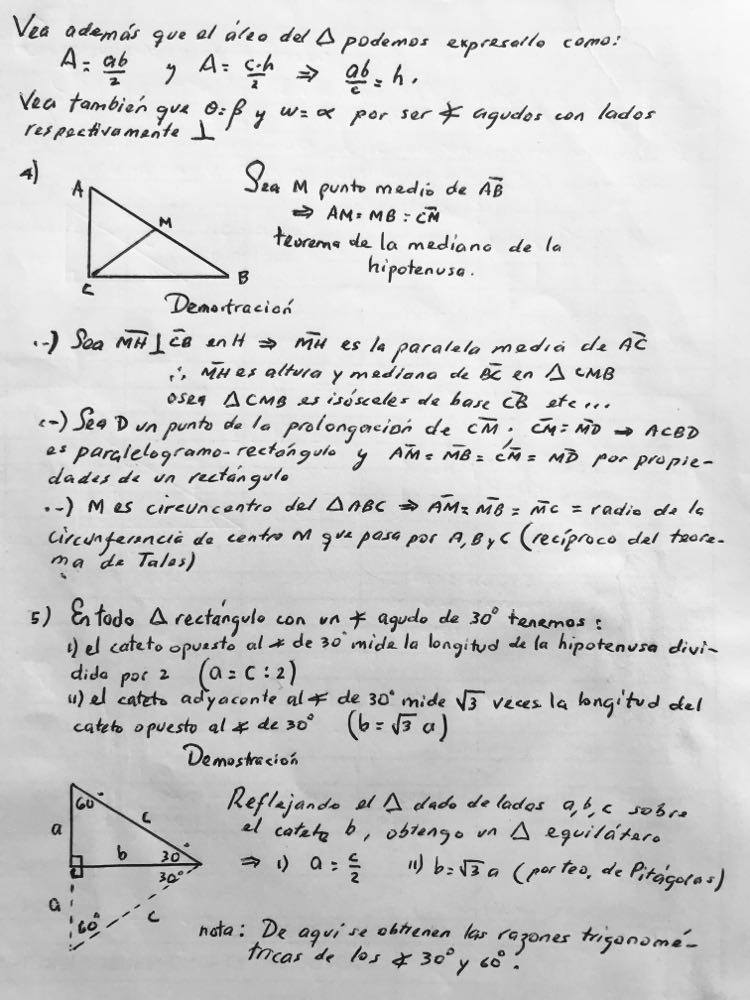 Vea además que el área del △ podemos expresarlo como:
A = ab/2 y A = c·h/2 ⇒ ab/c = h.
Vea también que θ=β y w=α por ser ∢ agudos con lados
respectivamente ⊥
4)
A
M
C
B
Sea M punto medio de A̅B̅
⇒ AM = MB = C̅M̅
teorema de la mediana de la
hipotenusa.
Demostración
·-) Sea M̅H̅ ⊥ C̅B̅ en H ⇒ M̅H̅ es la paralela media de A̅C̅
∴ M̅H̅ es altura y mediana de B̅C̅ en △ CMB
osea △CMB es isósceles de base C̅B̅ etc...
··-) Sea D un punto de la prolongación de C̅M̅ · C̅M̅ = M̅D̅ → ACBD
es paralelogramo-rectángulo y A̅M̅ = M̅B̅ = C̅M̅ = M̅D̅ por propie-
dades de un rectángulo
··-) M es circuncentro del △ABC ⇒ A̅M̅ = M̅B̅ = M̅C̅ = radio de la
circunferencia de centro M que pasa por A, B y C (recíproco del teore-
ma de Tales)
5) En todo △ rectángulo con un ∢ agudo de 30° tenemos:
i) el cateto opuesto al ∢ de 30° mide la longitud de la hipotenusa divi-
dida por 2 (a = c : 2)
ii) el cateto adyacente al ∢ de 30° mide √3 veces la longitud del
cateto opuesto al ∢ de 30° (b = √3 a)
Demostración
60°
c
a
b
30°
30°
a
60°
c
Reflejando el △ dado de lados a, b, c sobre
el cateto b, obtengo un △ equilátero
⇒ i) a = c/2 ii) b = √3 a (por teo. de Pitágolas)
nota: De aquí se obtienen las razones trigonomé-
tricas de los ∢ 30° y 60°.